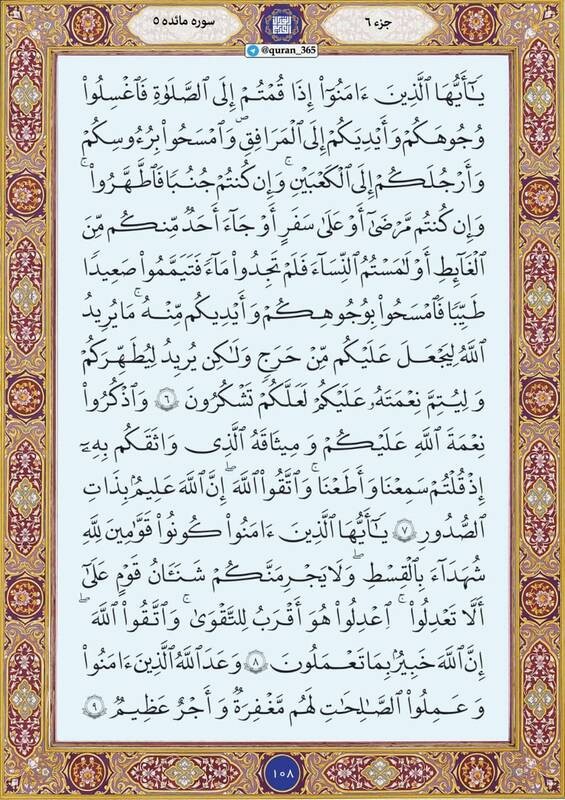 جزء ۶
سوره مائده ۵
@quran_365
يَـٰٓأَيُّهَا ٱلَّذِينَ ءَامَنُوٓا۟ إِذَا قُمْتُمْ إِلَى ٱلصَّلَوٰةِ فَٱغْسِلُوا۟
وُجُوهَكُمْ وَأَيْدِيَكُمْ إِلَى ٱلْمَرَافِقِ وَٱمْسَحُوا۟ بِرُءُوسِكُمْ
وَأَرْجُلَكُمْ إِلَى ٱلْكَعْبَيْنِ ۚ وَإِن كُنتُمْ جُنُبًا فَٱطَّهَّرُوا۟ ۚ
وَإِن كُنتُم مَّرْضَىٰٓ أَوْ عَلَىٰ سَفَرٍ أَوْ جَآءَ أَحَدٌ مِّنكُم مِّنَ
ٱلْغَآئِطِ أَوْ لَـٰمَسْتُمُ ٱلنِّسَآءَ فَلَمْ تَجِدُوا۟ مَآءً فَتَيَمَّمُوا۟ صَعِيدًا
طَيِّبًا فَٱمْسَحُوا۟ بِوُجُوهِكُمْ وَأَيْدِيكُم مِّنْهُ ۚ مَا يُرِيدُ
ٱللَّهُ لِيَجْعَلَ عَلَيْكُم مِّنْ حَرَجٍ وَلَـٰكِن يُرِيدُ لِيُطَهِّرَكُمْ
وَلِيُتِمَّ نِعْمَتَهُۥ عَلَيْكُمْ لَعَلَّكُمْ تَشْكُرُونَ ۶ وَٱذْكُرُوا۟
نِعْمَةَ ٱللَّهِ عَلَيْكُمْ وَمِيثَـٰقَهُ ٱلَّذِى وَاثَقَكُم بِهِۦٓ
إِذْ قُلْتُمْ سَمِعْنَا وَأَطَعْنَا ۖ وَٱتَّقُوا۟ ٱللَّهَ ۚ إِنَّ ٱللَّهَ عَلِيمٌۢ بِذَاتِ
ٱلصُّدُورِ ۷ يَـٰٓأَيُّهَا ٱلَّذِينَ ءَامَنُوا۟ كُونُوا۟ قَوَّٰمِينَ لِلَّهِ
شُهَدَآءَ بِٱلْقِسْطِ ۖ وَلَا يَجْرِمَنَّكُمْ شَنَـَٔانُ قَوْمٍ عَلَىٰٓ
أَلَّا تَعْدِلُوا۟ ۚ ٱعْدِلُوا۟ هُوَ أَقْرَبُ لِلتَّقْوَىٰ ۖ وَٱتَّقُوا۟ ٱللَّهَ ۚ
إِنَّ ٱللَّهَ خَبِيرٌۢ بِمَا تَعْمَلُونَ ۸ وَعَدَ ٱللَّهُ ٱلَّذِينَ ءَامَنُوا۟
وَعَمِلُوا۟ ٱلصَّـٰلِحَـٰتِ لَهُم مَّغْفِرَةٌ وَأَجْرٌ عَظِيمٌ ۹
۱۰۸